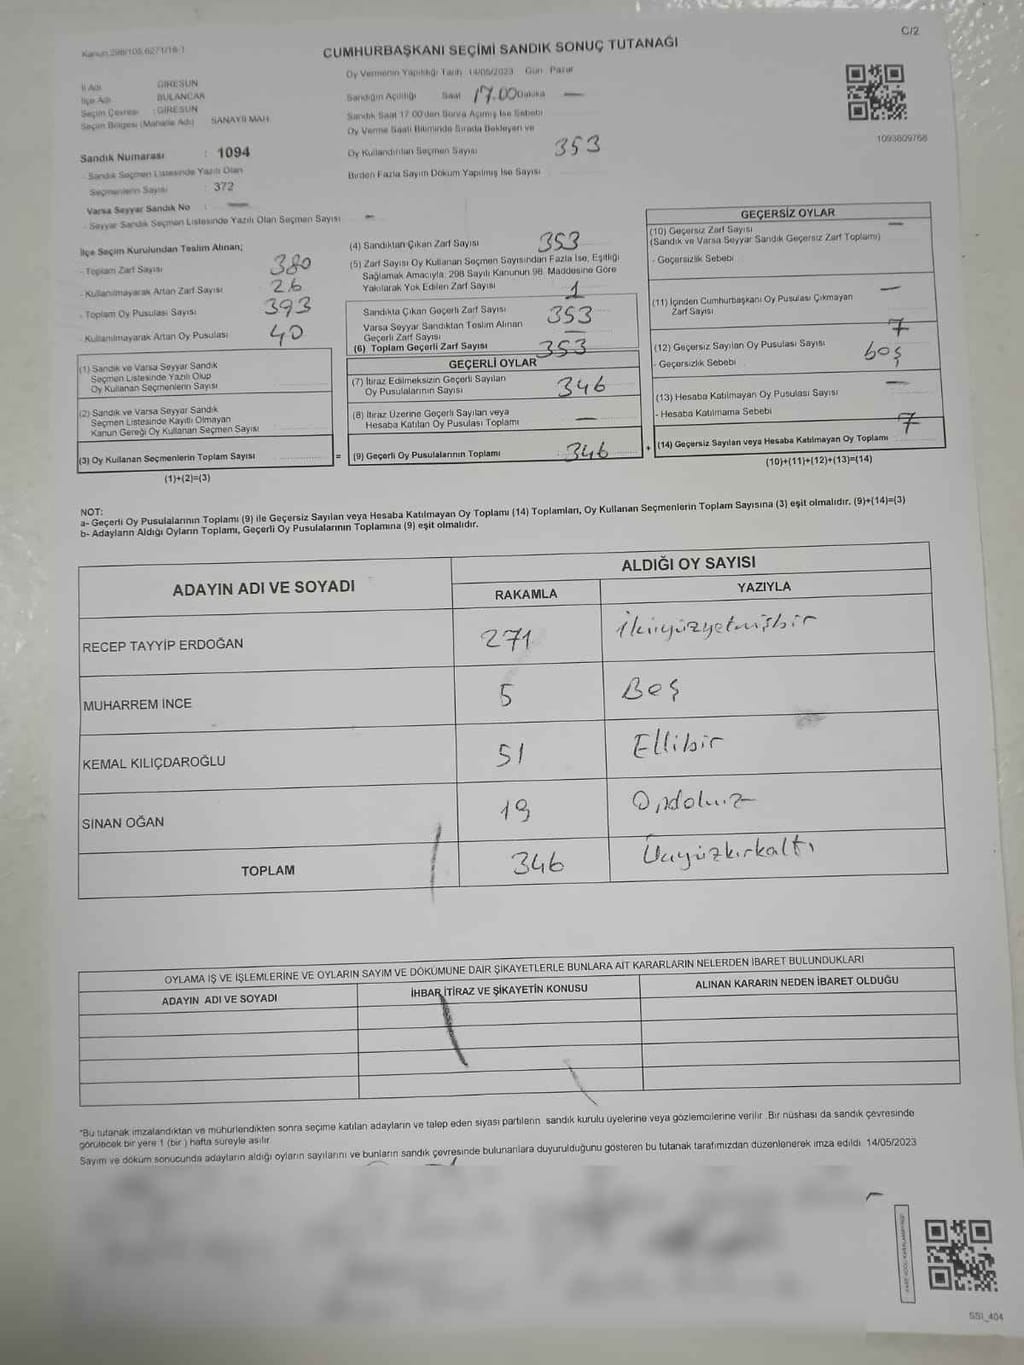 C/2
Kanun:298/105,6271/18-1
CUMHURBAŞKANI SEÇİMİ SANDIK SONUÇ TUTANAĞI
İl Adı GİRESUN
İlçe Adı BULANCAK
Seçim Çevresi : GİRESUN
Seçim Bölgesi (Mahalle Adı) SANAYİİ MAH.
Oy Vermenin Yapıldığı Tarih 14/05/2023 Gün Pazar
Sandığın Açıldığı Saat 17.00 Dakika —
Sandık Saat 17.00'den Sonra Açılmış İse Sebebi
Oy Verme Saati Bitiminde Sırada Bekleyen ve
Oy Kullandırılan Seçmen Sayısı 353
Birden Fazla Sayım Döküm Yapılmış İse Sayısı
1093809768
Sandık Numarası : 1094
- Sandık Seçmen Listesinde Yazılı Olan
Seçmenlerin Sayısı : 372
Varsa Seyyar Sandık No : —
- Seyyar Sandık Seçmen Listesinde Yazılı Olan Seçmen Sayısı —
İlçe Seçim Kurulundan Teslim Alınan;
- Toplam Zarf Sayısı 380
- Kullanılmayarak Artan Zarf Sayısı 26
- Toplam Oy Pusulası Sayısı 393
- Kullanılmayarak Artan Oy Pusulası 40
(1) Sandık ve Varsa Seyyar Sandık
Seçmen Listesinde Yazılı Olup
Oy Kullanan Seçmenlerin Sayısı
(2) Sandık ve Varsa Seyyar Sandık
Seçmen Listesinde Kayıtlı Olmayan
Kanun Gereği Oy Kullanan Seçmen Sayısı
(3) Oy Kullanan Seçmenlerin Toplam Sayısı
(1)+(2)=(3)
=
(4) Sandıktan Çıkan Zarf Sayısı 353
(5) Zarf Sayısı Oy Kullanan Seçmen Sayısından Fazla İse, Eşitliği
Sağlamak Amacıyla; 298 Sayılı Kanunun 98. Maddesine Göre
Yakılarak Yok Edilen Zarf Sayısı 1
Sandıkta Çıkan Geçerli Zarf Sayısı 353
Varsa Seyyar Sandıktan Teslim Alınan
Geçerli Zarf Sayısı —
(6) Toplam Geçerli Zarf Sayısı 353
GEÇERLİ OYLAR
(7) İtiraz Edilmeksizin Geçerli Sayılan
Oy Pusulalarının Sayısı 346
(8) İtiraz Üzerine Geçerli Sayılan veya
Hesaba Katılan Oy Pusulası Toplamı —
(9) Geçerli Oy Pusulalarının Toplamı 346
+
GEÇERSİZ OYLAR
(10) Geçersiz Zarf Sayısı —
(Sandık ve Varsa Seyyar Sandık Geçersiz Zarf Toplamı)
- Geçersizlik Sebebi
(11) İçinden Cumhurbaşkanı Oy Pusulası Çıkmayan —
Zarf Sayısı
(12) Geçersiz Sayılan Oy Pusulası Sayısı 7
- Geçersizlik Sebebi boş
(13) Hesaba Katılmayan Oy Pusulası Sayısı —
- Hesaba Katılmama Sebebi
(14) Geçersiz Sayılan veya Hesaba Katılmayan Oy Toplamı 7
(10)+(11)+(12)+(13)=(14)
NOT:
a- Geçerli Oy Pusulalarının Toplamı (9) ile Geçersiz Sayılan veya Hesaba Katılmayan Oy Toplamı (14) Toplamları, Oy Kullanan Seçmenlerin Toplam Sayısına (3) eşit olmalıdır. (9)+(14)=(3)
b- Adayların Aldığı Oyların Toplamı, Geçerli Oy Pusulalarının Toplamına (9) eşit olmalıdır.
ADAYIN ADI VE SOYADI
ALDIĞI OY SAYISI
RAKAMLA YAZIYLA
RECEP TAYYİP ERDOĞAN 271 İkiyüzyetmişbir
MUHARREM İNCE 5 Beş
KEMAL KILIÇDAROĞLU 51 Ellibir
SİNAN OĞAN 19 Ondokuz
TOPLAM 346 Üçyüzkırkaltı
OYLAMA İŞ VE İŞLEMLERİNE VE OYLARIN SAYIM VE DÖKÜMÜNE DAİR ŞİKAYETLERLE BUNLARA AİT KARARLARIN NELERDEN İBARET BULUNDUKLARI
ADAYIN ADI VE SOYADI İHBAR,İTİRAZ VE ŞİKAYETİN KONUSU ALINAN KARARIN NEDEN İBARET OLDUĞU
*Bu tutanak imzalandıktan ve mühürlendikten sonra seçime katılan adayların ve talep eden siyasi partilerin sandık kurulu üyelerine veya gözlemcilerine verilir. Bir nüshası da sandık çevresinde
görülecek bir yere 1 (bir ) hafta süreyle asılır.
Sayım ve döküm sonucunda adayların aldığı oyların sayılarını ve bunların sandık çevresinde bulunanlara duyurulduğunu gösteren bu tutanak tarafımızdan düzenlenerek imza edildi. 14/05/2023
SSI_404